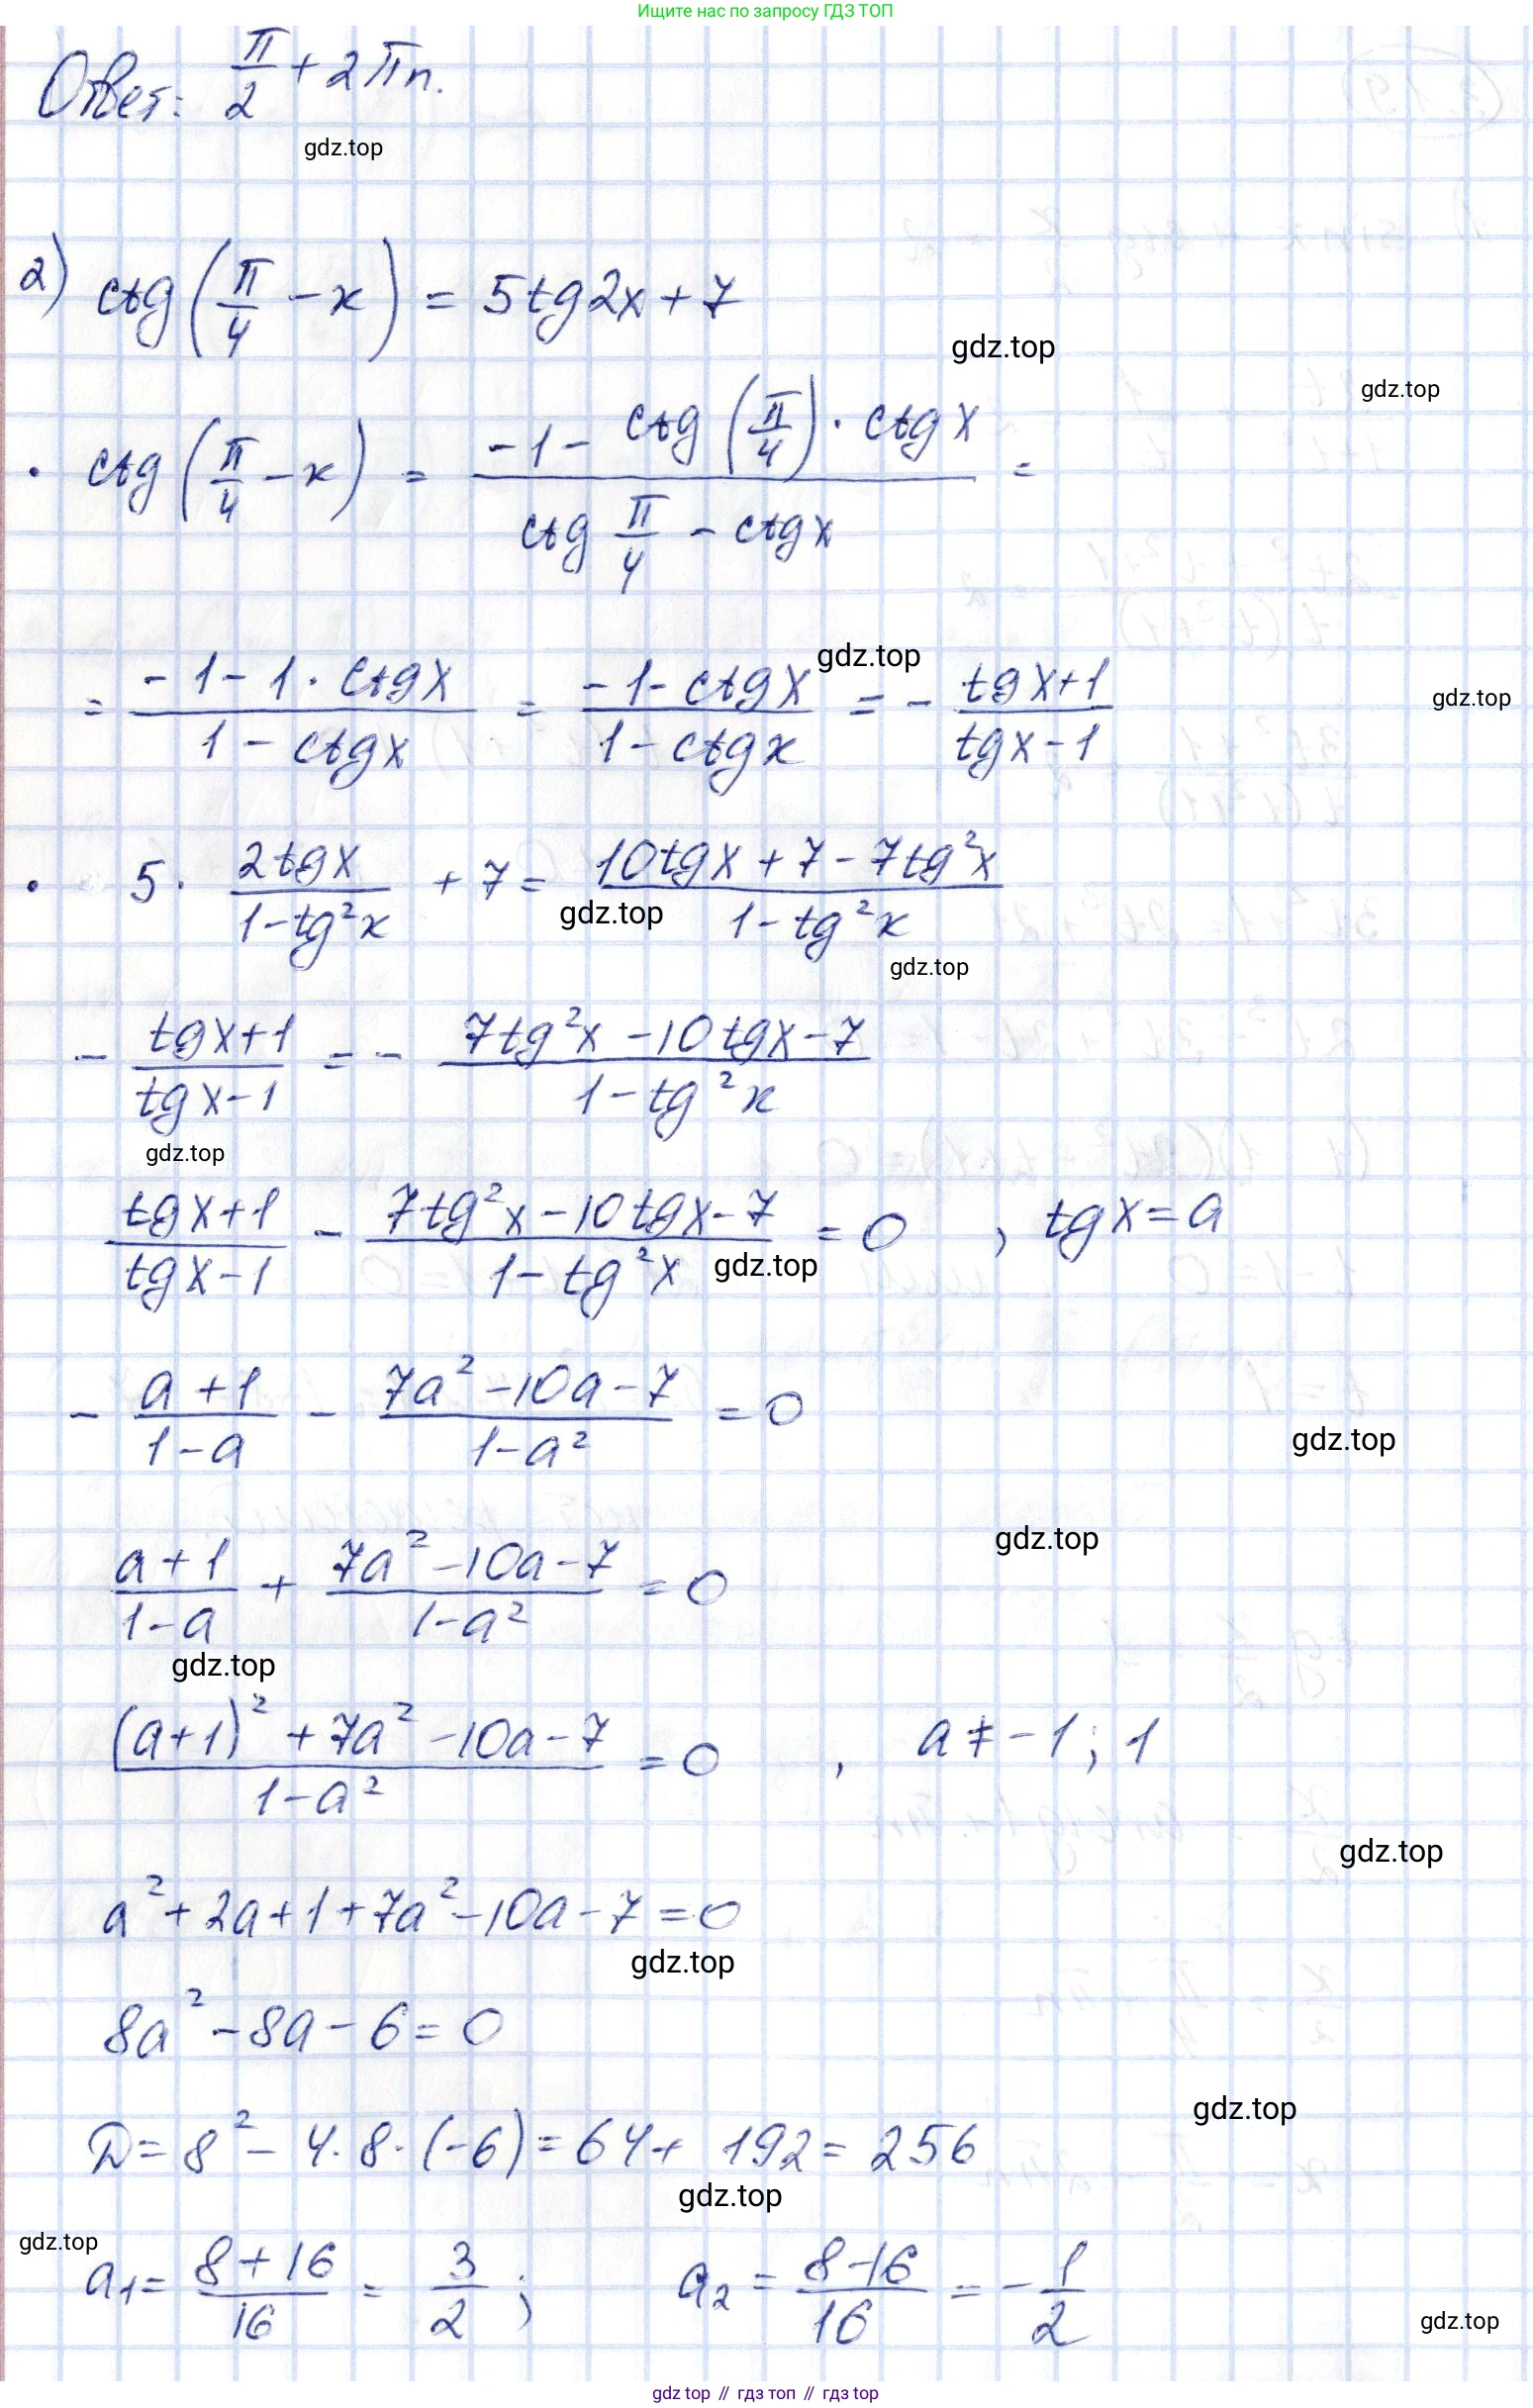 Ищите нас по запросу ГДЗ ТОП
Ответ: π/2 + 2πn.
gdz.top
2) ctg(π/4 - x) = 5tg2x + 7
gdz.top
gdz.top
• ctg(π/4 - x) = (-1 - ctg(π/4) · ctgx)/(ctg π/4 - ctgx) =
gdz.top
= (-1 - 1 · ctgx)/(1 - ctgx) = (-1 - ctgx)/(1 - ctgx) = - (tgx+1)/(tgx-1)
gdz.top
• 5 · 2tgx/(1-tg²x) + 7 = (10tgx + 7 - 7tg²x)/(1 - tg²x)
gdz.top
gdz.top
- (tgx+1)/(tgx-1) = - (7tg²x - 10tgx - 7)/(1 - tg²x)
gdz.top
(tgx+1)/(tgx-1) - (7tg²x - 10tgx - 7)/(1 - tg²x) = 0 , tgx = a
gdz.top
- (a+1)/(1-a) - (7a² - 10a - 7)/(1-a²) = 0
gdz.top
gdz.top
(a+1)/(1-a) + (7a² - 10a - 7)/(1-a²) = 0
gdz.top
((a+1)² + 7a² - 10a - 7)/(1-a²) = 0 , a ≠ -1; 1
gdz.top
a² + 2a + 1 + 7a² - 10a - 7 = 0
gdz.top
8a² - 8a - 6 = 0
gdz.top
D = 8² - 4·8·(-6) = 64 + 192 = 256
gdz.top
gdz.top
a₁ = (8+16)/16 = 3/2 ; a₂ = (8-16)/16 = - 1/2
gdz.top
gdz top // гдз топ // gdz top